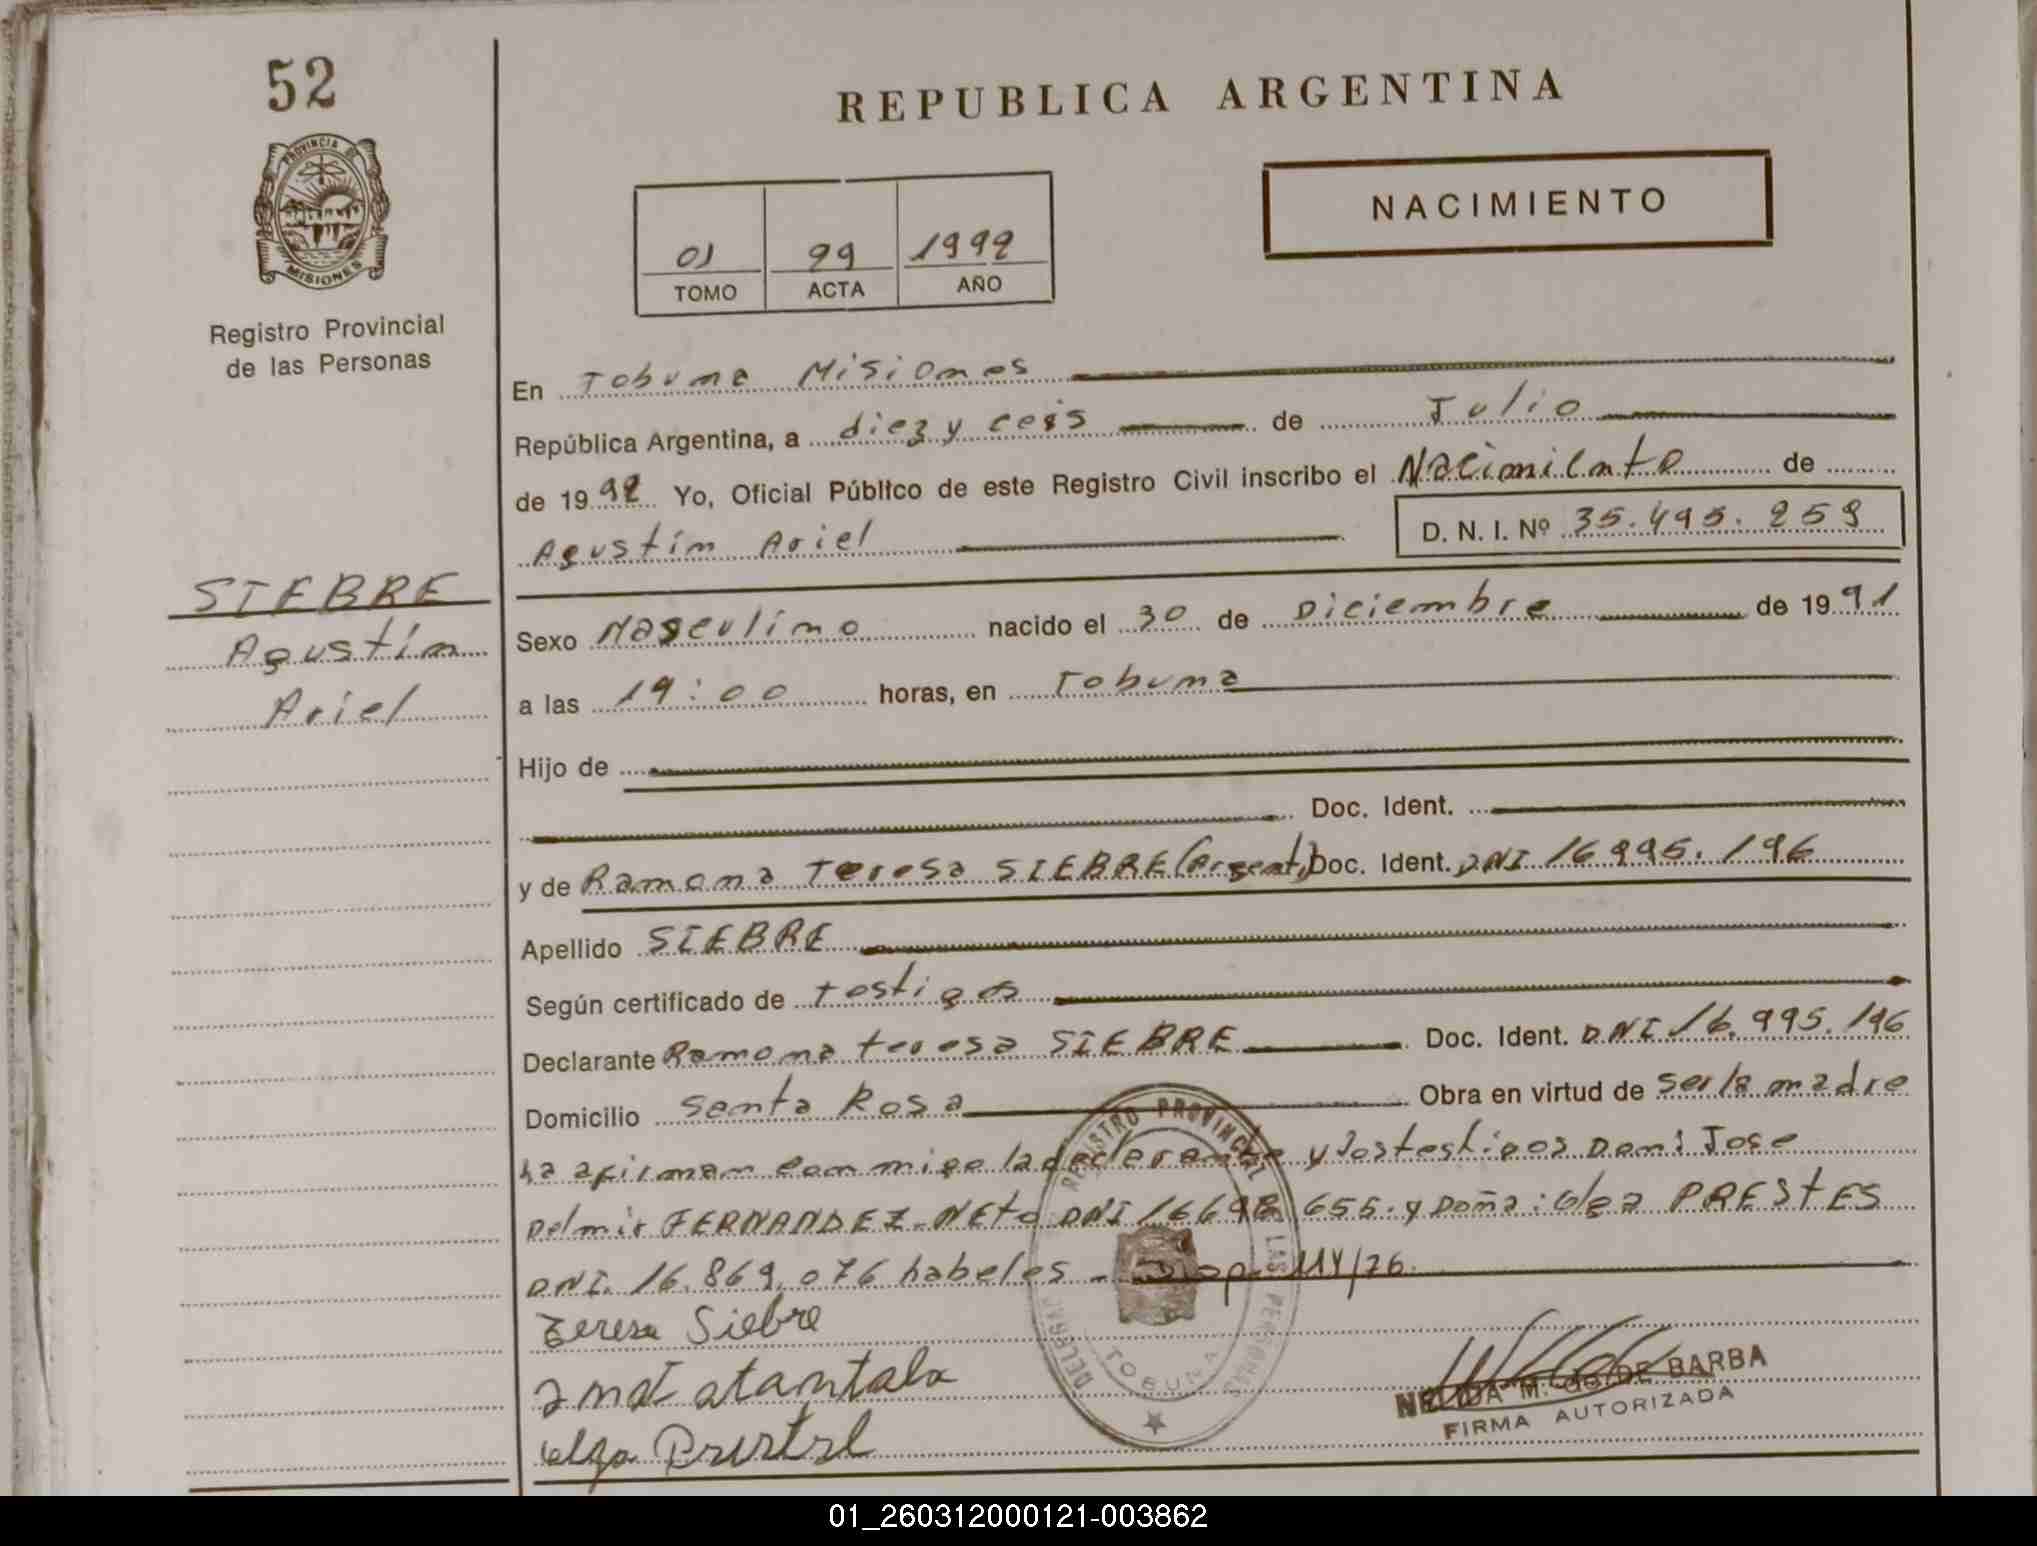 52
REPUBLICA ARGENTINA
PROVINCIA DE
MISIONES
NACIMIENTO
01 99 1992
TOMO ACTA AÑO
Registro Provincial
de las Personas
En Tobuna Misiones
República Argentina, a diez y ceis de Julio
de 1992 Yo, Oficial Público de este Registro Civil inscribo el Nacimiento de
Agustín Ariel D. N. I. Nº 35.495.259
SIEBRE
Agustín
Ariel
Sexo Masculino nacido el 30 de Diciembre de 1991
a las 19:00 horas, en Tobuna
Hijo de
Doc. Ident.
y de Ramona Teresa SIEBRE (Argent.) Doc. Ident. DNI 16.995.196
Apellido SIEBRE
Según certificado de testigos
Declarante Ramona teresa SIEBRE Doc. Ident. DNI 16.995.196
Domicilio Santa Rosa Obra en virtud de ser la madre
La afirman conmigo la declarante y los testigos Don: Jose
Delmir FERNANDEZ-NEtO DNI 16698 655. y Doña: Olga PREStES
DNI. 16.869.076 habeles - Disp. 114/76
Teresa Siebre
Olga
REGISTRO PROVINCIAL DE LAS PERSONAS
TOBUNA
NELIDA M. G. DE BARBA
FIRMA AUTORIZADA
01_260312000121-003862